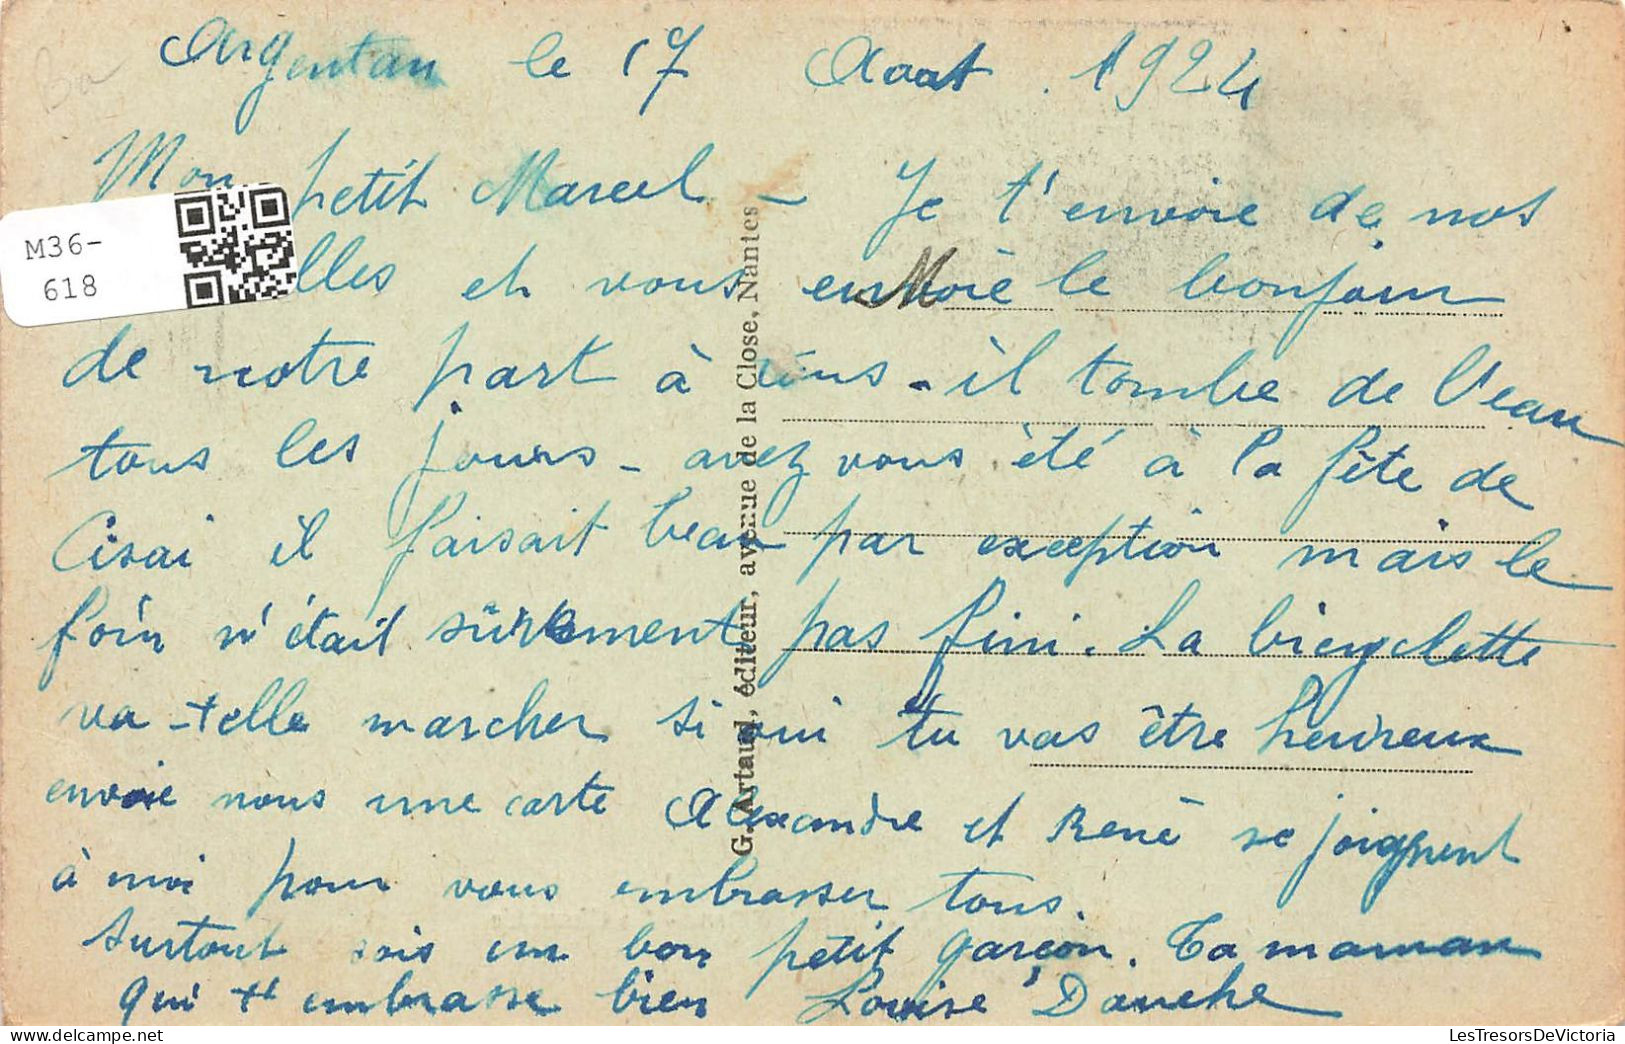 Argentan le 17 Aout 1924
Mon petit Marcel - Je t'envoie de nos
lles et vous envoie le bonjour
de notre part à tous - il tombe de l'eau
tous les jours - avez vous été à la fête de
Cisai il faisait beau par exception mais le
foin n'était sûrement pas fini. La bicyclette
va-telle marcher si oui tu vas être heureux
envoie nous une carte Alexandre et René se joignent
à moi pour vous embrasser tous.
Surtout sois un bon petit garçon. Ta maman
qui t'embrasse bien Louise Dauche
G. Artaud, éditeur, avenue de la Close, Nantes
M36-
618
LesTresorsDeVictoria.com